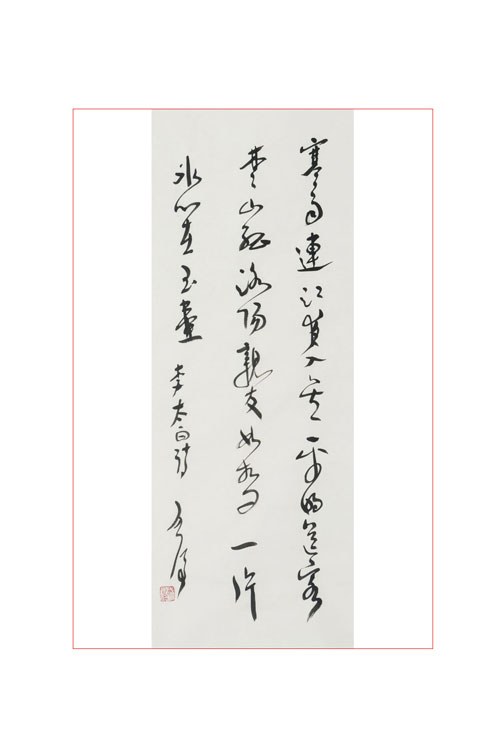 寒雨連江夜入吳平明送客
楚山孤洛陽親友如相問一片
冰心在玉壺 李太白詩